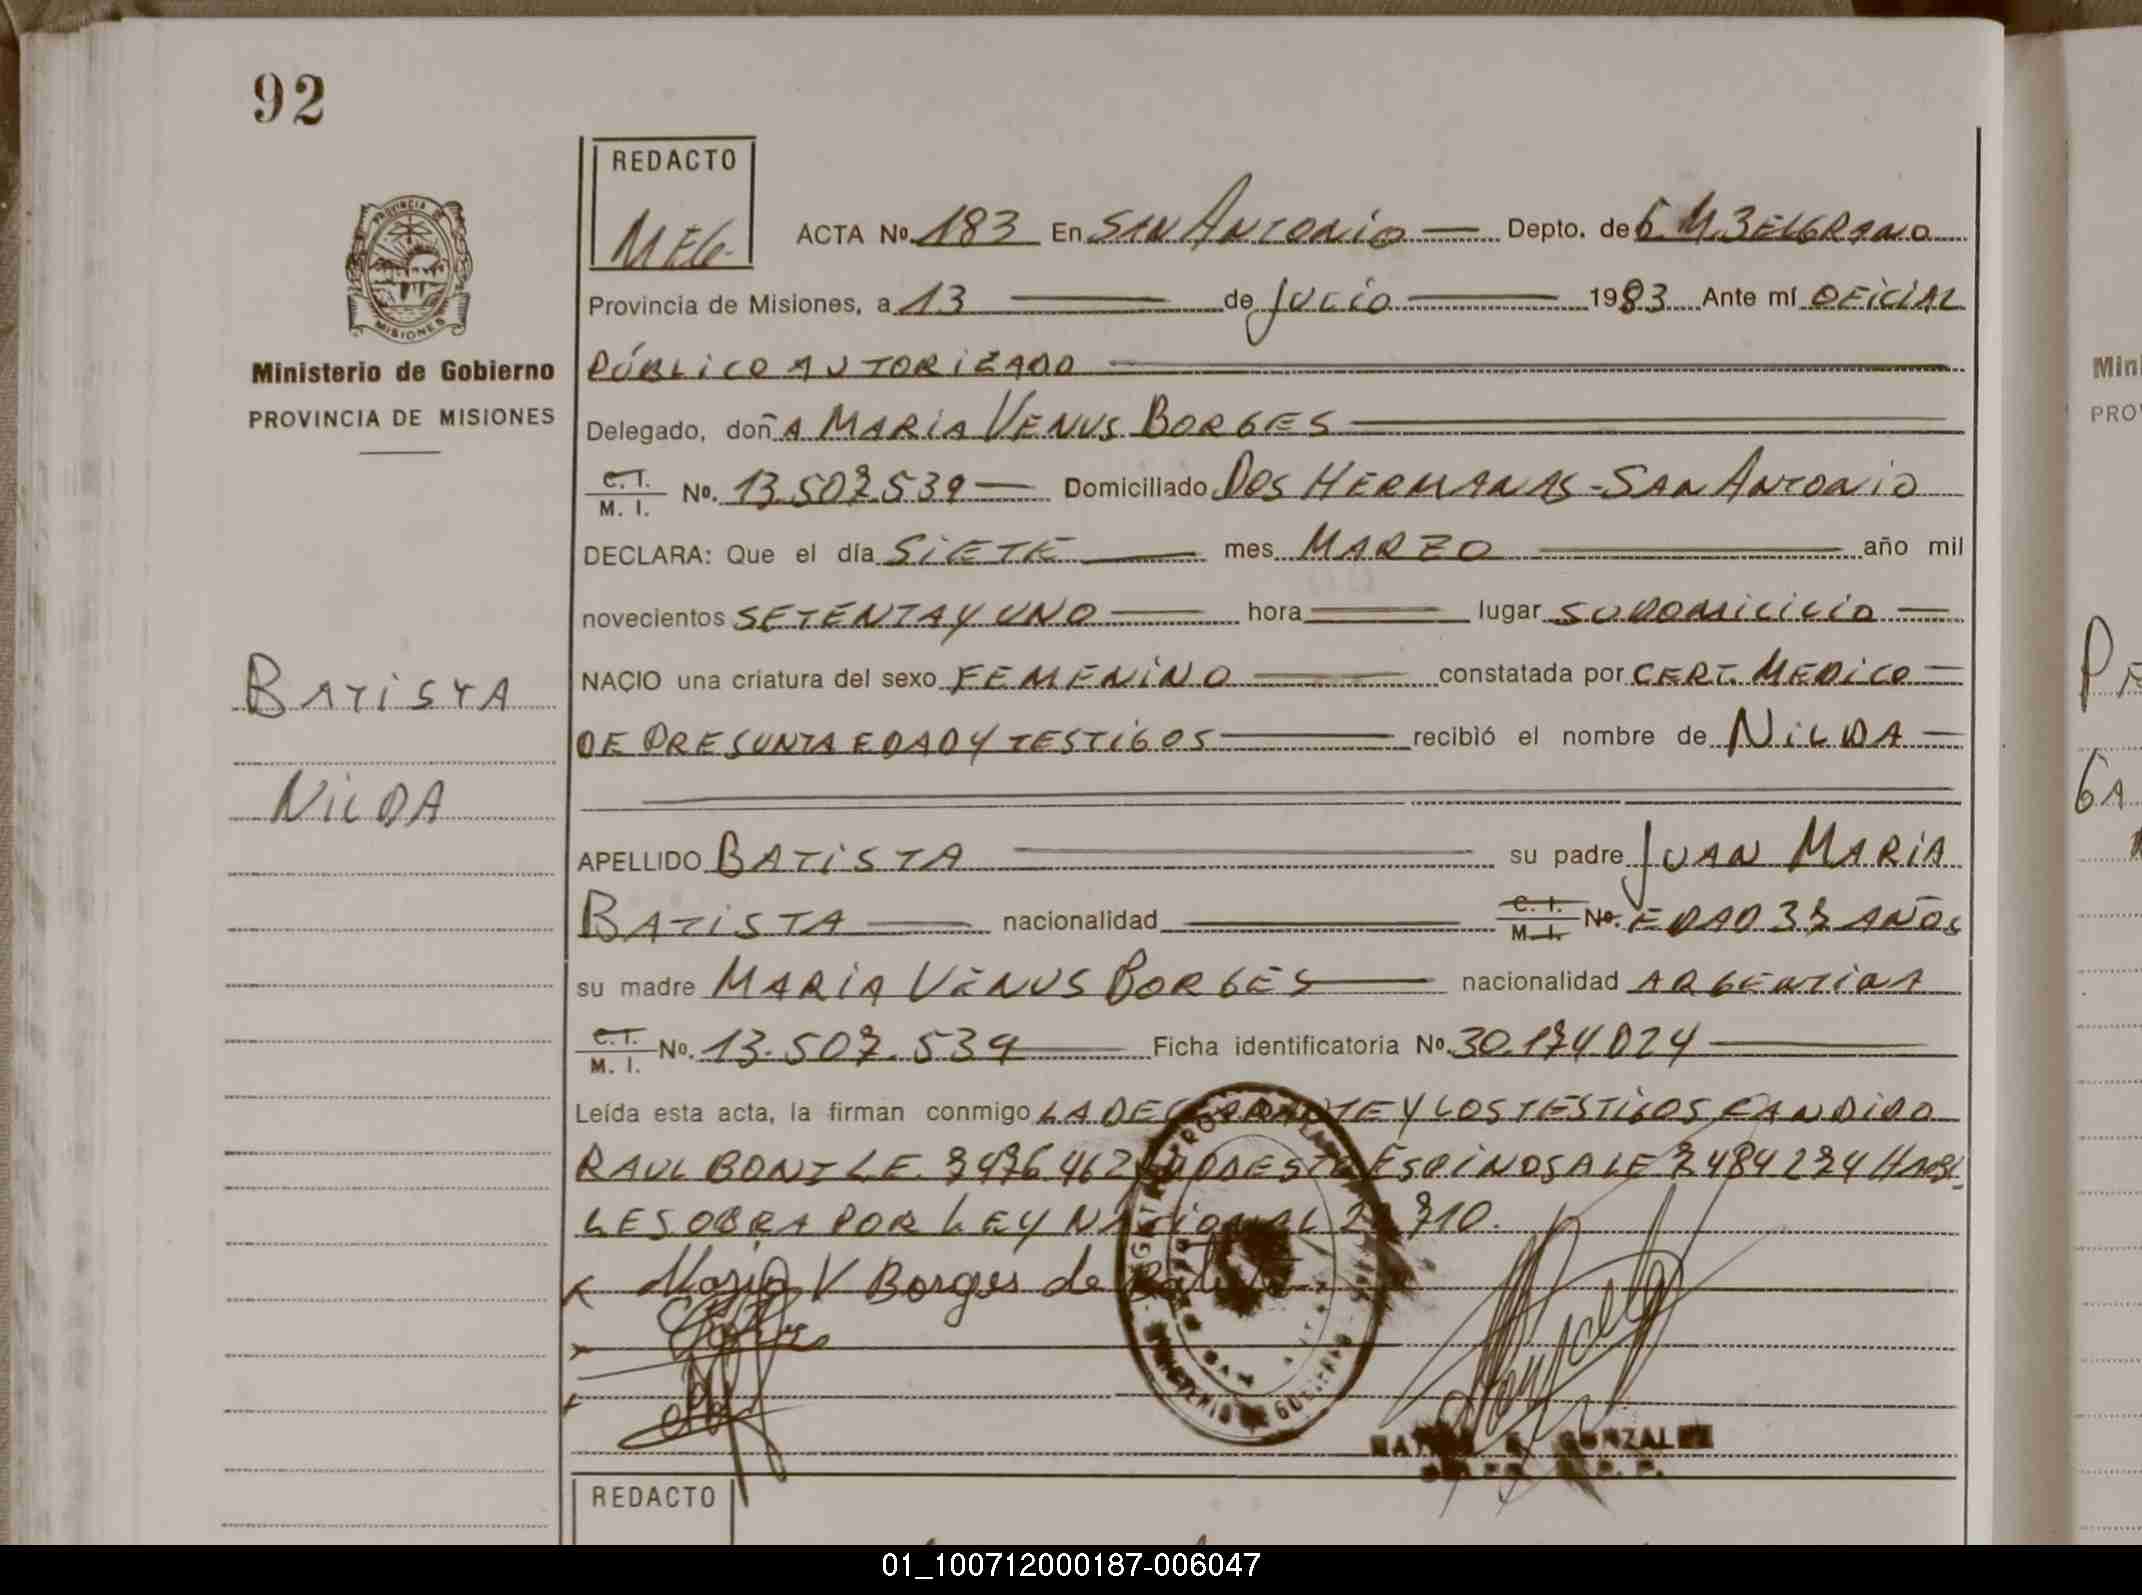 92
REDACTO
MEG.
ACTA Nº 183 En SAN ANTONIO Depto. de G. M. BELGRANO
Provincia de Misiones, a 13 de JULIO 1983 Ante mí OFICIAL
PÚBLICO AUTORIZADO
Delegado, doñA MARIA VENUS BORGES
C. I.
M. I. Nº. 13.507.539 Domiciliado DOS HERMANAS - SAN ANTONIO
DECLARA: Que el día SIETE mes MARZO año mil
novecientos SETENTA Y UNO hora lugar SU DOMICILIO
NACIO una criatura del sexo FEMENINO constatada por CERT. MEDICO
DE PRESUNTA EDAD Y TESTIGOS recibió el nombre de NILDA
APELLIDO BATISTA su padre JUAN MARIA
BATISTA nacionalidad C. I. M. I. Nº. EDAD 37 AÑOS
su madre MARIA VENUS BORGES nacionalidad ARGENTINA
C. I.
M. I. Nº. 13.507.539 Ficha identificatoria Nº. 30.174024
Leída esta acta, la firman conmigo LA DECLARANTE Y LOS TESTIGOS CANDIDO
RAUL BONI L.E. 7476462 ESPINOSA LE 7484274 HABI
LES OBRA POR LEY NACIONAL 710.
Maria V Borges de Batista
GONZALEZ
PROVINCIA DE
MISIONES
Ministerio de Gobierno
PROVINCIA DE MISIONES
BATISTA
NILDA
REDACTO
Min
PRO
01_100712000187-006047